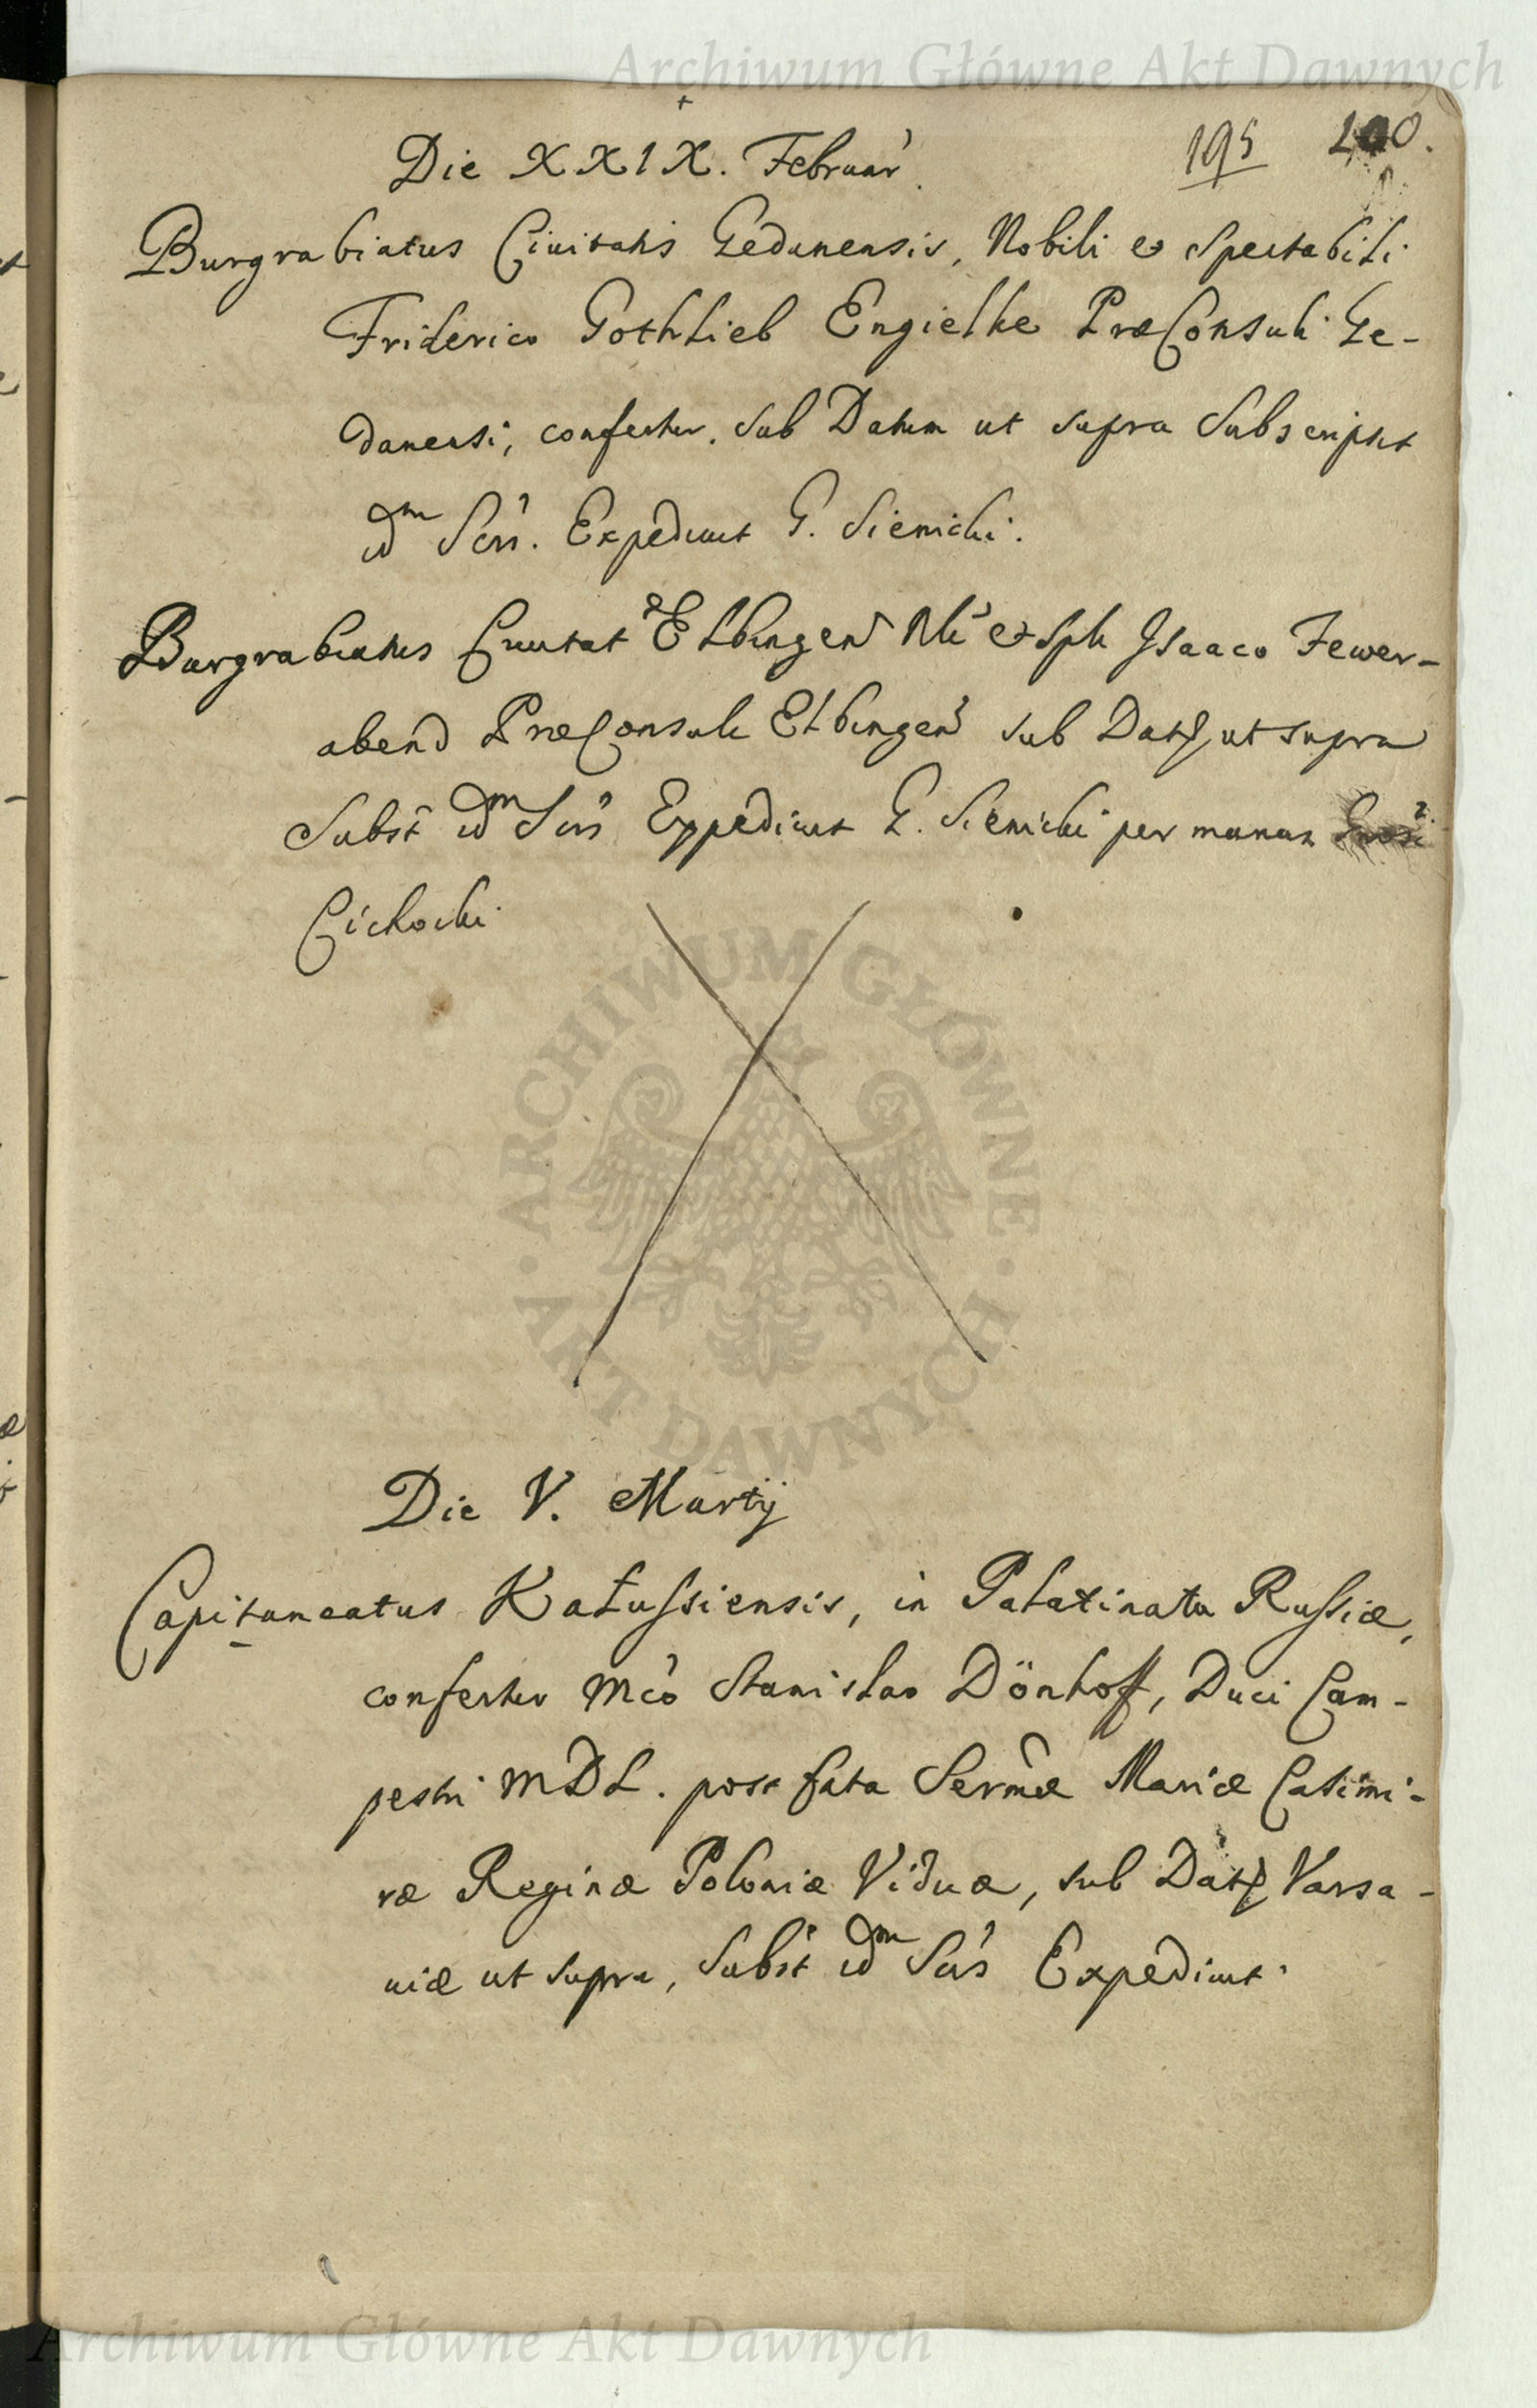 Archiwum Główne Akt Dawnych
195 200.
Die XXIX. Februar
Burgrabiatus Civitatis Gedanensis, Nobili et Spectabili
Friderico Gothlieb Engielke PræConsuli Ge-
danensi, confertur. Sub Datum ut supra Subscripsit
idm Sers. Expediuit G. Sienicki.
Burgrabiatus Ciuitat Elbingen Nli et Spli Jsaaco Fewer-
abend PræConsuli Elbingen sub Dat ut supra
Subst idm Sers Expediuit G. Sienicki per manus
Cichocki
ARCHIWUM GŁÓWNE
· AKT DAWNYCH ·
Die V. Martij
Capitaneatus Kałussiensis, in Palatinatu Russiæ,
confertur Mco Stanislao Dönhoff, Duci Cam-
pestri MDL. post fata Sermæ Mariæ Casimi-
ræ Reginæ Poloniæ Viduæ, sub Dat Varsa-
uiæ ut supra, Subst idm Sers Expediuit.
Archiwum Główne Akt Dawnych